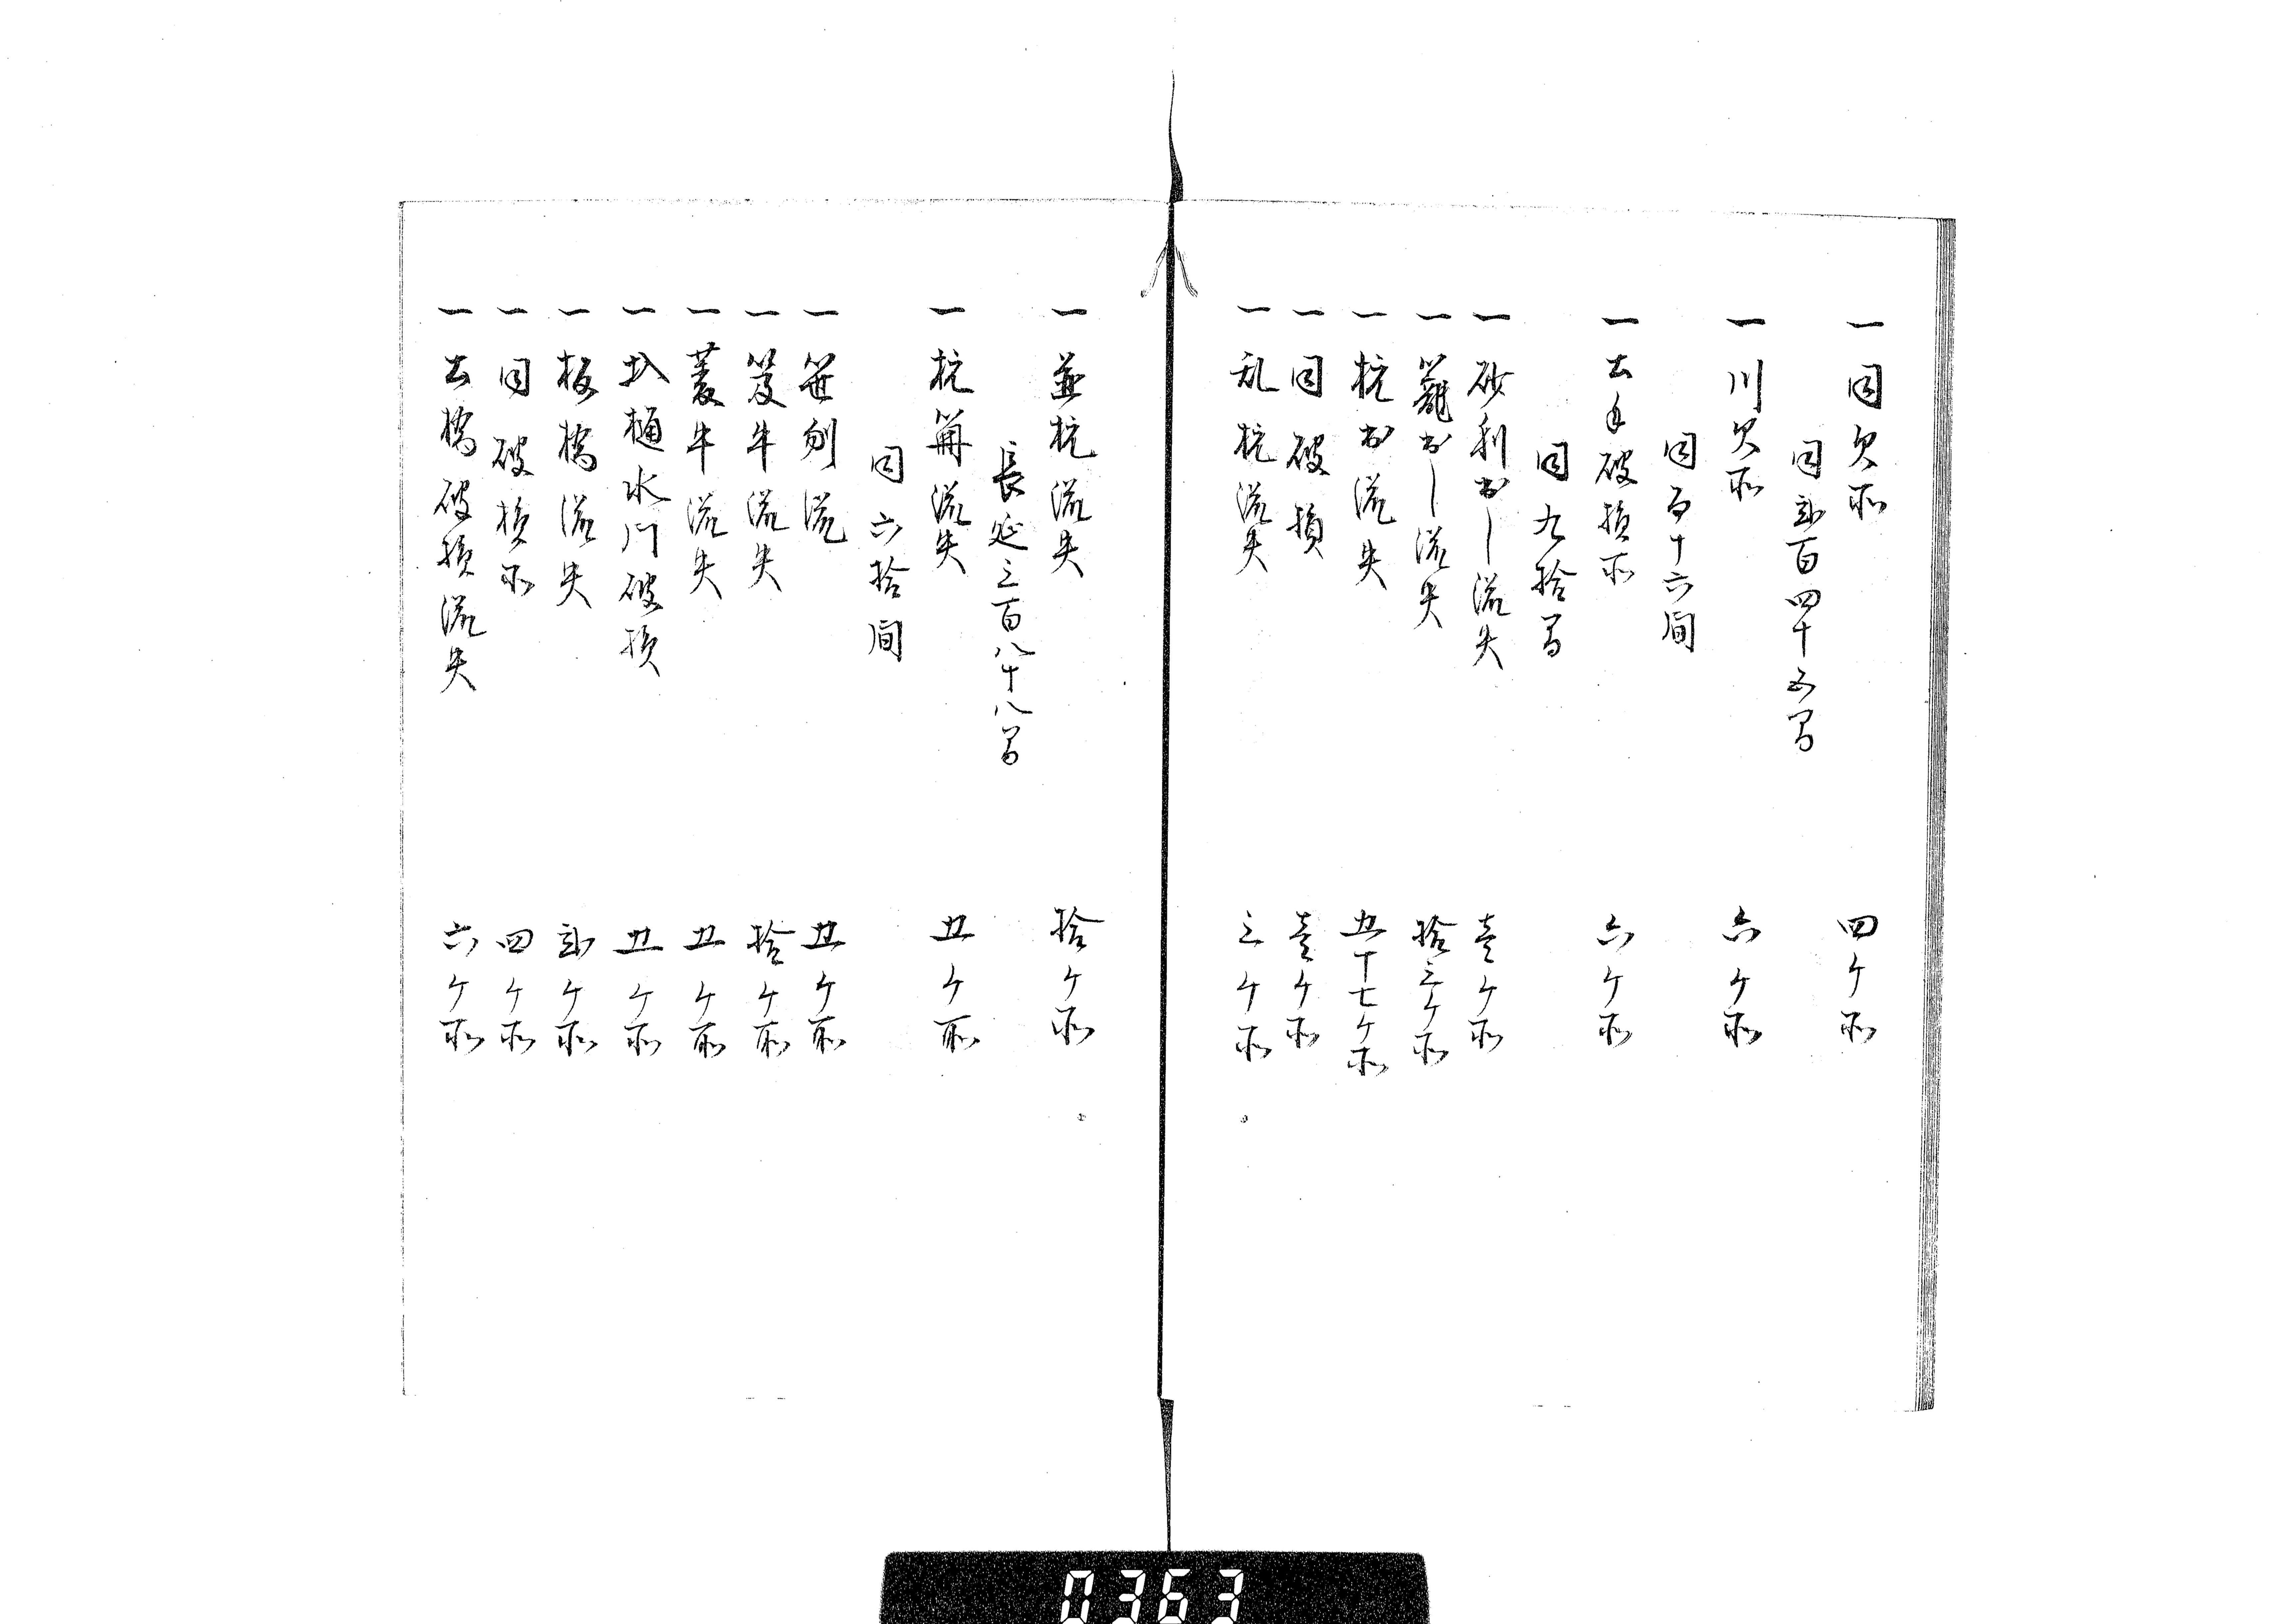 一同欠所 四ケ所
同弐百四十五間
一川欠所 六ケ所
同百十六間
一土手破損所 六ケ所
同九拾間
一砂利出シ流失 壱ケ所
一籠出シ流失 拾三ケ所
一杭出流失 五十七ケ所
一同破損 壱ケ所
一乱杭流失 三ケ所
一並杭流失 拾ケ所
長延三百八十八間
一杭柵流失 五ケ所
同六拾間
一笹刎流 五ケ所
一笈牛流失 拾ケ所
一菱牛流失 五ケ所
一圦樋水門破損 五ケ所
一板橋流失 弐ケ所
一同破損所 四ケ所
一土橋破損流失 六ケ所
0363